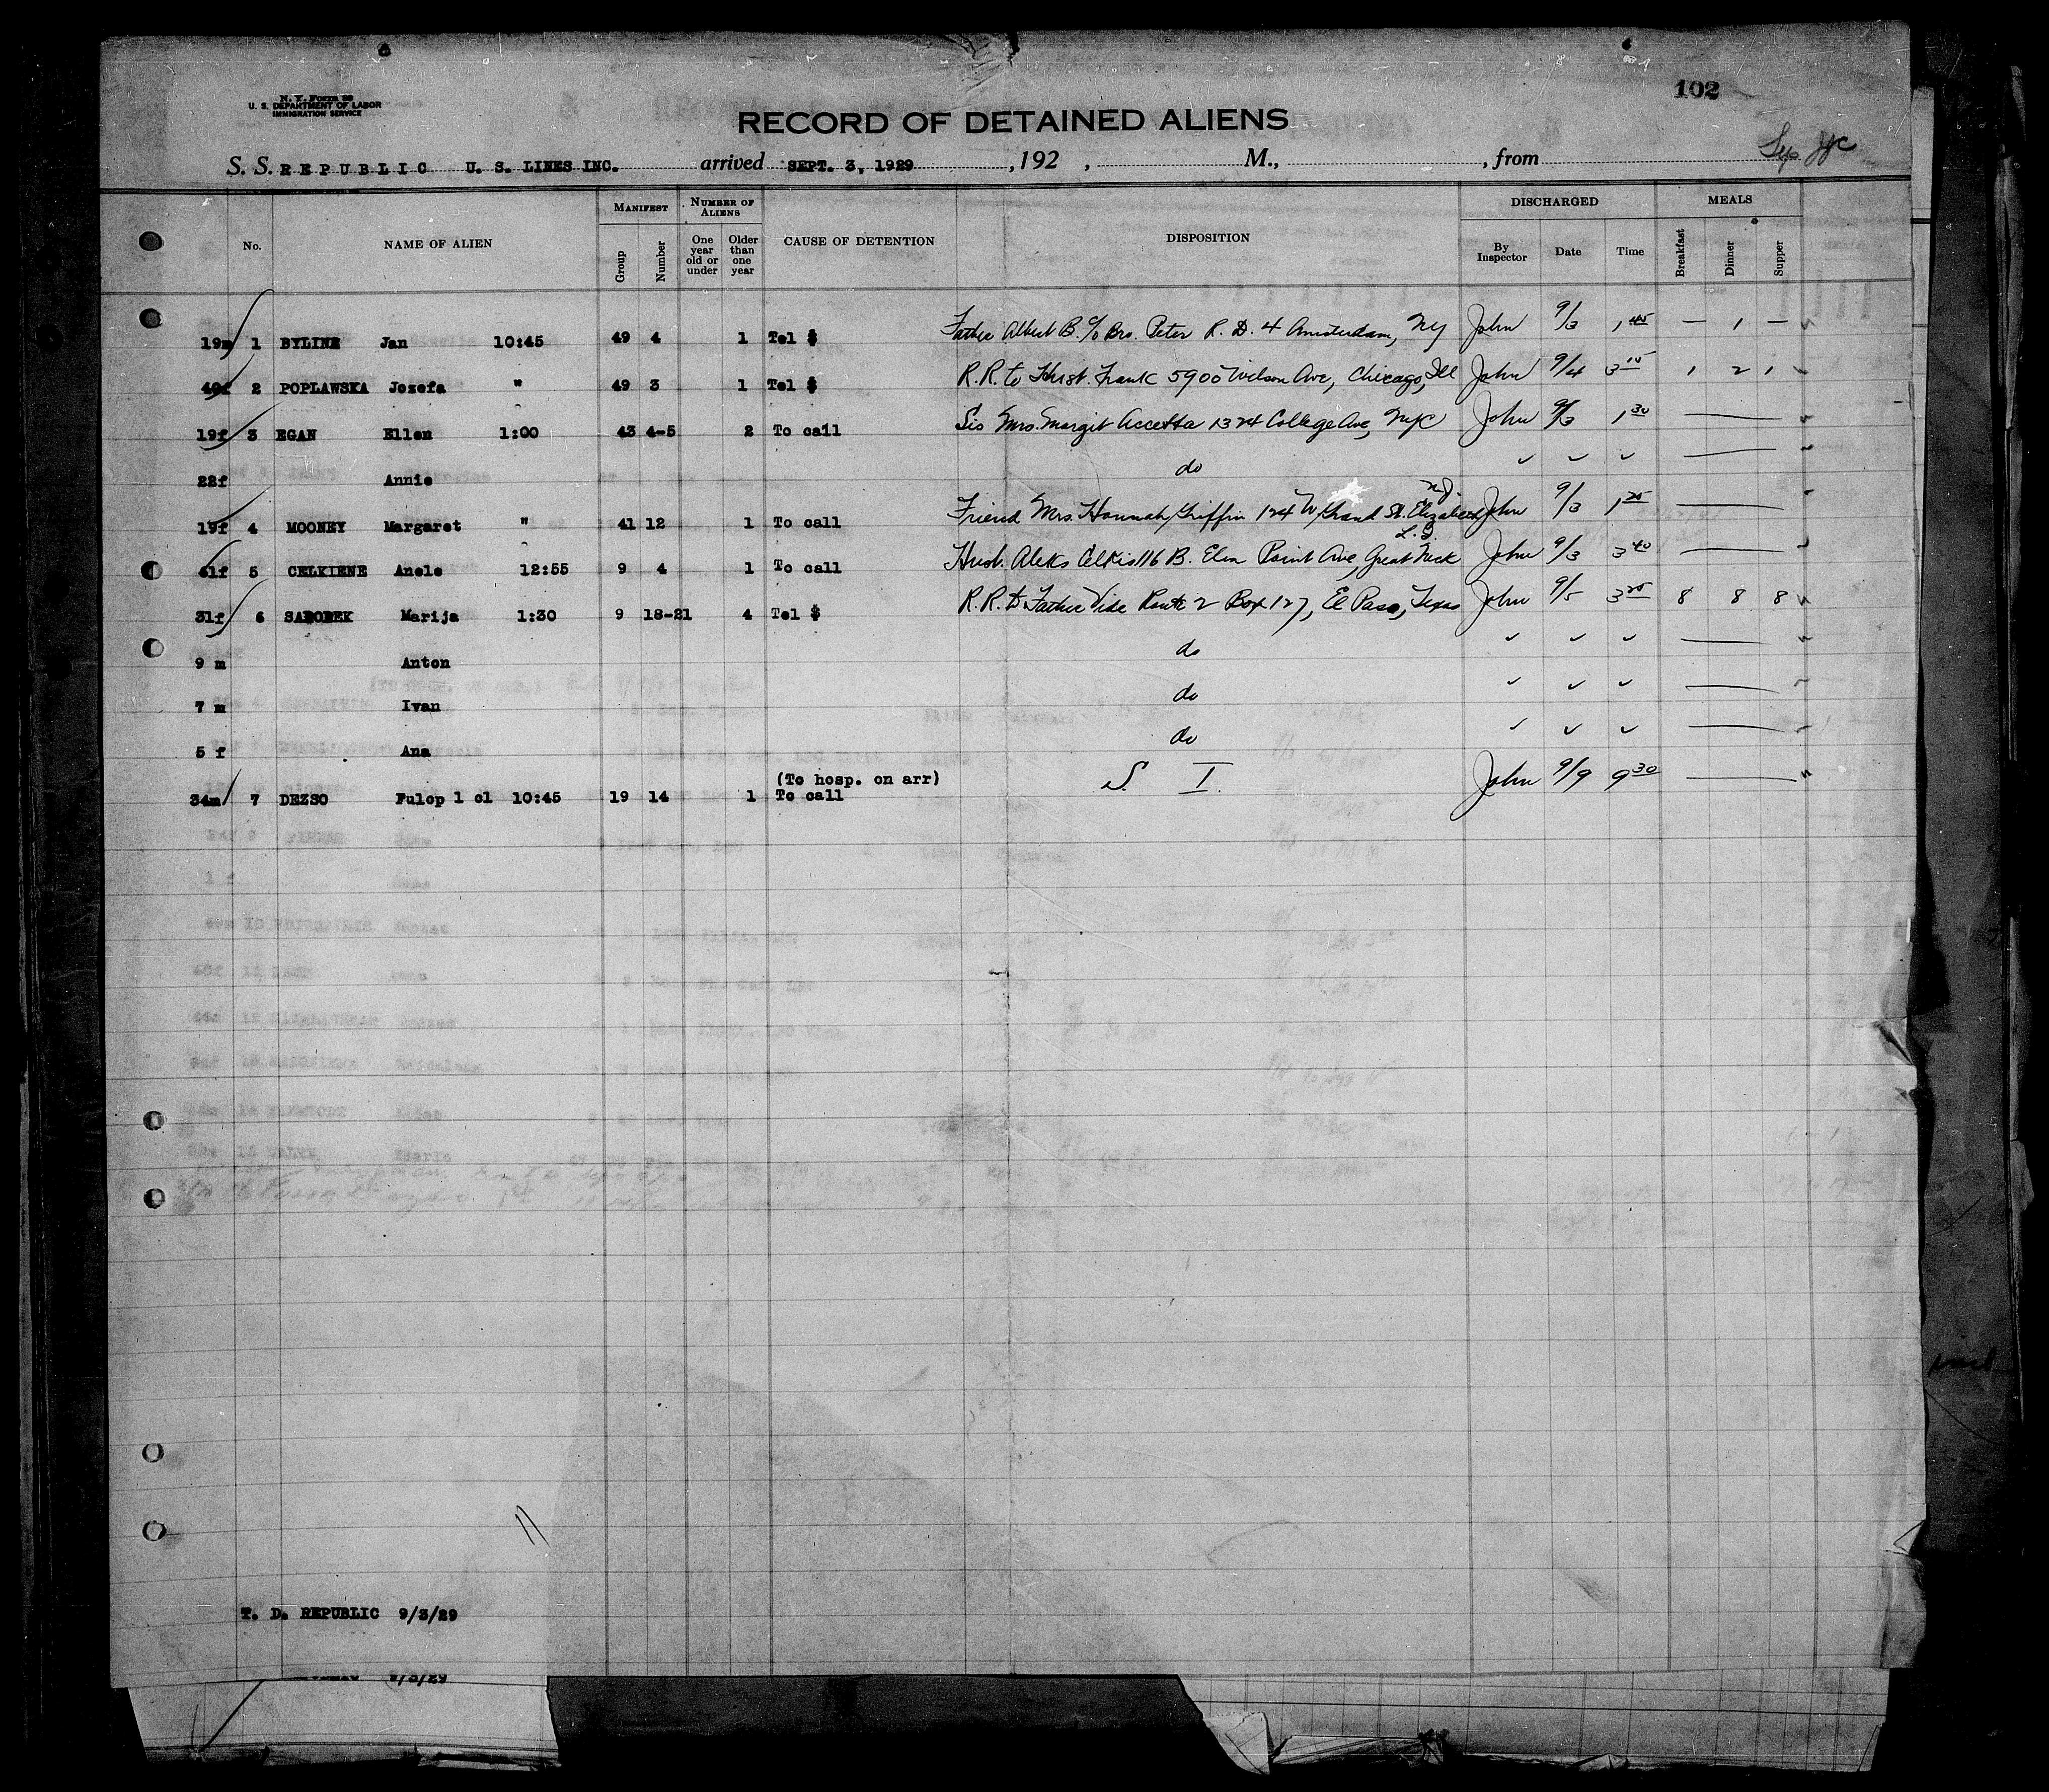 102
N. Y. Form 99
U. S. DEPARTMENT OF LABOR
IMMIGRATION SERVICE
RECORD OF DETAINED ALIENS
S. S. REPUBLIC U. S. LINES INC. arrived SEPT. 3, 1929 , 192 , M., , from
No. NAME OF ALIEN MANIFEST Group Number NUMBER OF ALIENS One year old or under Older than one year CAUSE OF DETENTION DISPOSITION DISCHARGED By Inspector Date Time MEALS Breakfast Dinner Supper
19m 1 BYLINE Jan 10:45 49 4 1 Tel $ Father Albert B. c/o Bro. Peter R. D. 4 Amsterdam, NY John 9/3 1 45 — 1 —
40f 2 POPLAWSKA Jozefa " 49 3 1 Tel $ R.R. to Husb. Frank 5900 Wilson Ave, Chicago, Ill John 9/4 3 15 1 2 1
19f 3 EGAN Ellen 1:00 43 4-5 2 To call Sis Mrs. Margit Accetta 1324 College Ave, NYC John 9/3 1 30
22f Annie do
19f 4 MOONEY Margaret " 41 12 1 To call Friend Mrs. Hannah Griffin 124 W Grand St. Elizabeth N.J. John 9/3 1 25
41f 5 CELKIENE Anele 12:55 9 4 1 To call Husb. Aleks Celkis 116 B. Elm Point Ave, Great Neck L.I. John 9/3 3 40
31f 6 SABODEK Marija 1:30 9 18-21 4 Tel $ R.R. to Father Vide Route 2 Box 127, El Paso, Texas John 9/5 3 25 8 8 8
9 m Anton do
7 m Ivan do
5 f Ana do
34m 7 DEZSO Fulop 1 cl 10:45 19 14 1 (To hosp. on arr) To call S. I. John 9/9 9 30
T. D. REPUBLIC 9/3/29